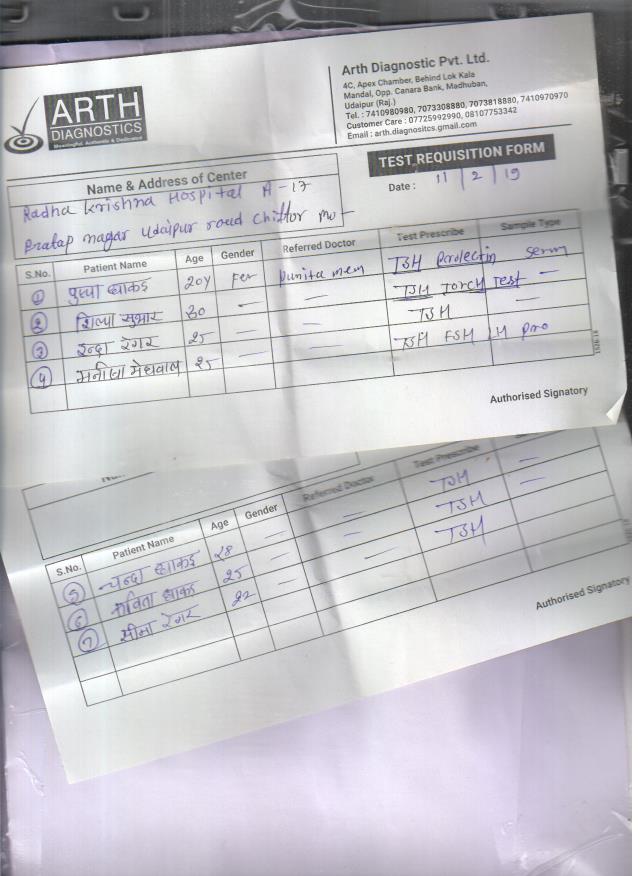 ARTH
DIAGNOSTICS
Meaningful, Authentic & Dedicated
Arth Diagnostic Pvt. Ltd.
4C, Apex Chamber, Behind Lok Kala
Mandal, Opp. Canara Bank, Madhuban,
Udaipur (Raj.)
Tel. : 7410980980, 7073308880, 7073818880, 7410970970
Customer Care : 07725992990, 08107753342
Email : arth.diagnositcs.gmail.com
TEST REQUISITION FORM
Date : 11/2/19
Name & Address of Center
Radha Krishna Hospital A-17
Pratap nagar Udaipur road Chittor
S.No. Patient Name Age Gender Referred Doctor Test Prescribe Sample Type
1 पुष्पा धाकड 20Y Fer Punita mem TSH Prolectin serm
2 शिल्पा सुथार 30 — — TSH TORCH Test —
3 इन्द्रा रेगर 25 — — TSH —
4 मनीषा मेघवाल 25 — — TSH FSH LH pro
Authorised Signatory
S.No. Patient Name Age Gender Referred Doctor Test Prescribe
5 चन्दा धाकड 28 — — TSH —
6 कविता धाकड 25 — — TSH —
7 सीमा रेगर 22 — — TSH
Authorised Signatory